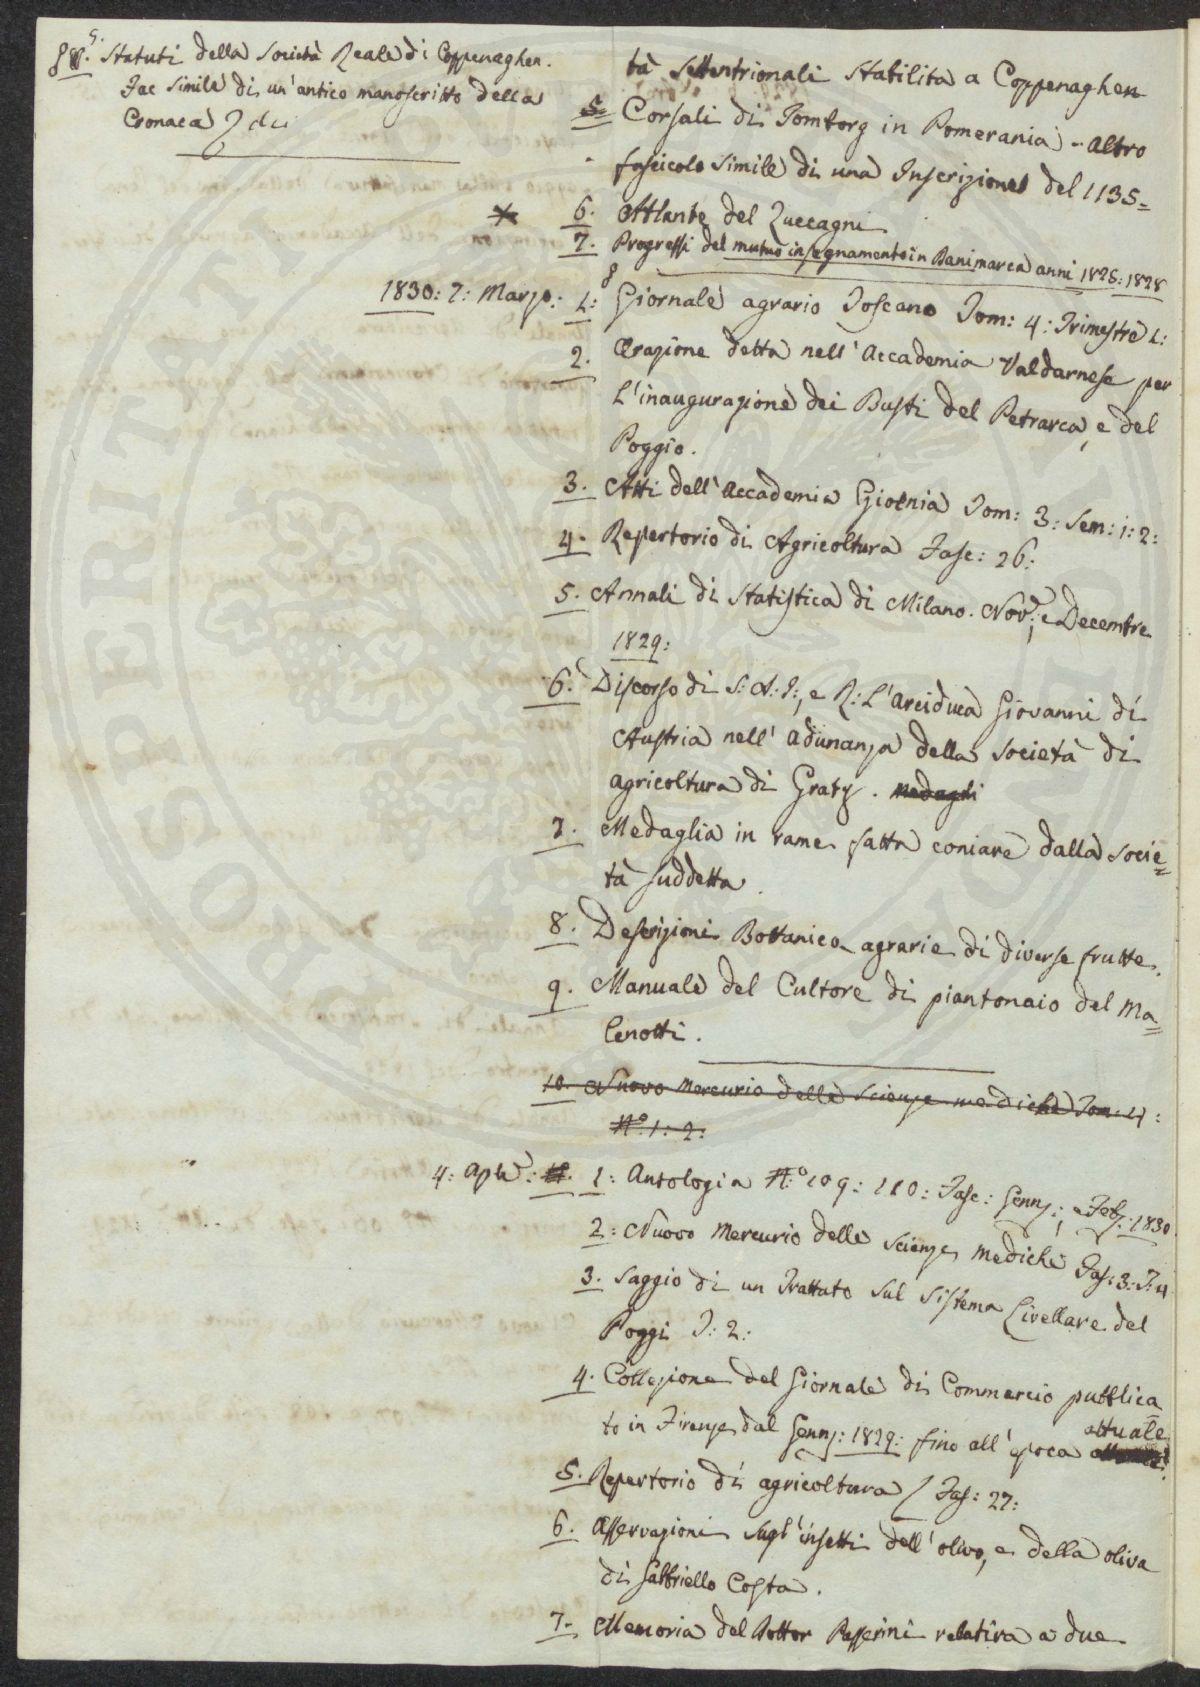 5. Statuti della Società Reale di Coppenaghen.
Fac simile di un'antico manoscritto della
Cronaca
tà settentrionali stabilita a Coppenaghen
5. Corsali di Jomborg in Pomerania - altro
fascicolo simile di una Inscrizione del 1135=
6. Atlante del Zuccagni
7. Progressi del mutuo insegnamento in Danimarca anni 1825: 1828
1830: 7: Marzo: 1: Giornale agrario Toscano Tom: 4: Trimestre 1:
2. Orazione detta nell'Accademia Valdarnese per
l'inaugurazione dei Busti del Petrarca, e del
Poggio.
3. Atti dell'Accademia Gioenia Tom: 3: Sem: 1: 2:
4. Repertorio di Agricoltura Fasc: 26:
5. Annali di Statistica di Milano. Nov:e, e Decembre
1829:
6. Discorso di S: A: I:, e R: L'Arciduca Giovanni di
Austria nell'adunanza della società di
agricoltura di Gratz. Medagli
7. Medaglia in rame fatta coniare dalla socie=
tà suddetta.
8. Descrizioni Bottanico agrarie di diverse frutte.
9. Manuale del Cultore di piantonaio del Ma=
lenotti.
10. Nuovo Mercurio delle scienze mediche Tom: 4:
N.° 1: 2:
4: Aple: 1: Antologia N.° 109: 110: Fasc: Genn:, e Feb: 1830
2: Nuovo Mercurio delle scienze mediche Fas: 3: T: 4
3. Saggio di un Trattato sul sistema Livellare del
Poggi T: 2:
4. Collezione del Giornale di Commercio pubblica=
to in Firenze dal Genn: 1829: fino all'epoca attuale
5. Repertorio di agricoltura Fas: 27:
6. Osservazioni sugl'insetti dell'olivo, e della oliva
di Gabbriello Costa.
7. Memoria del Dottor Passerini relativa a due
PROSPERITATI